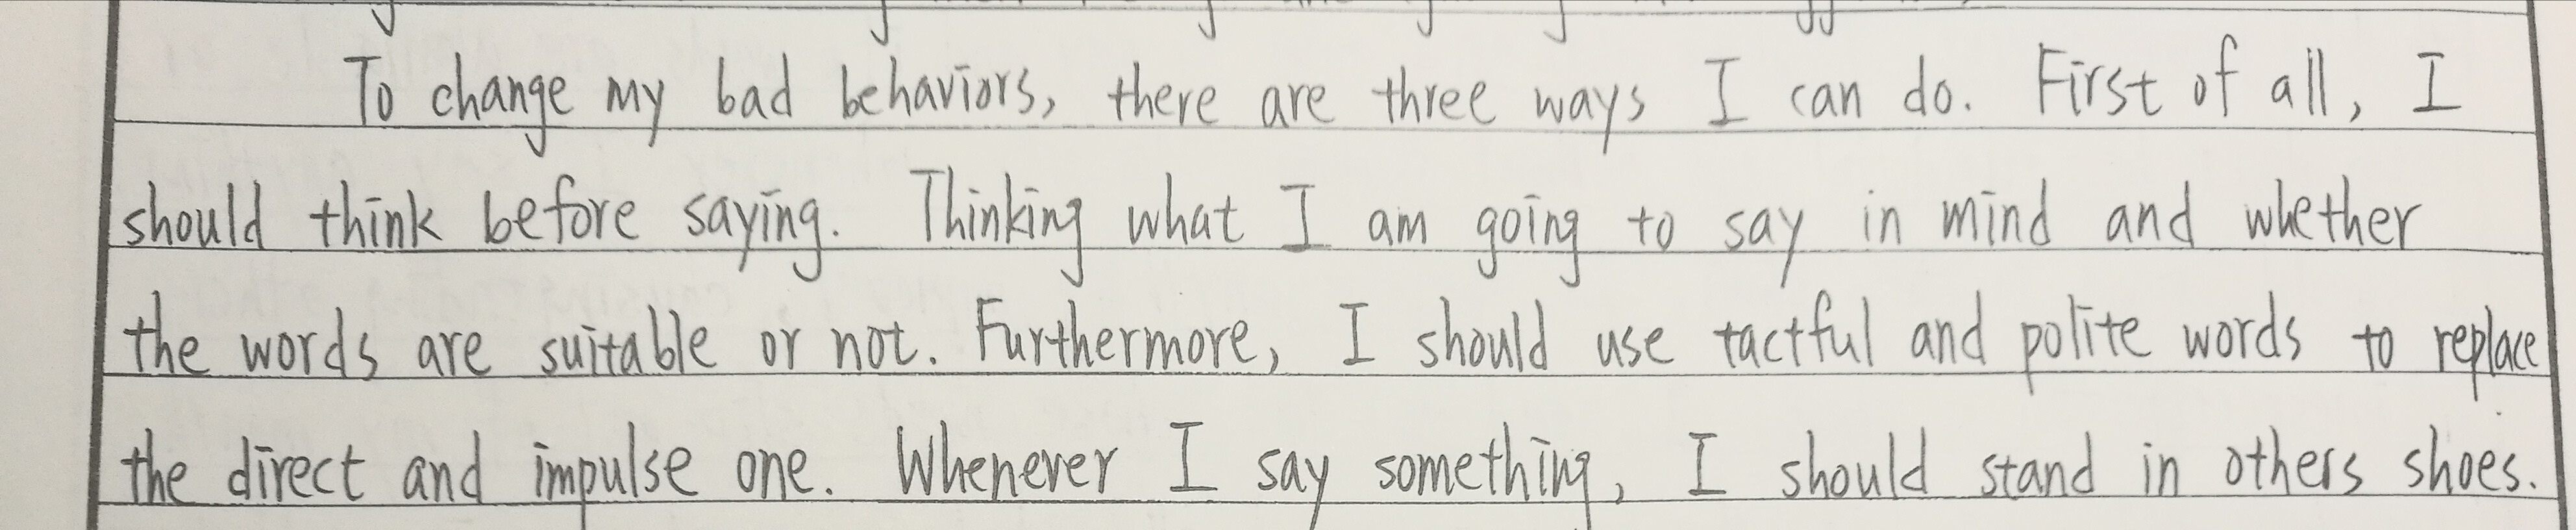 To change my bad behaviors, there are three ways I can do. First of all, I
should think before saying. Thinking what I am going to say in mind and whether
the words are suitable or not. Furthermore, I should use tactful and polite words to replace
the direct and impulse one. Whenever I say something, I should stand in others shoes.